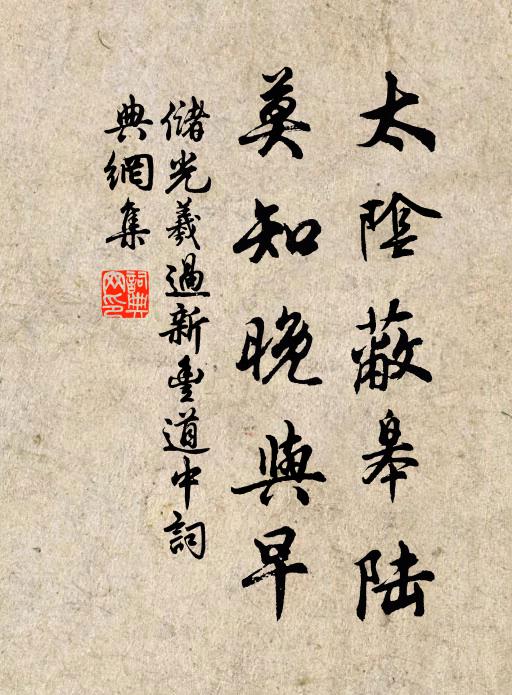 太陰蔽皋陸
莫知晚與早
儲光羲過新豐道中詞
典網集
詞典网印